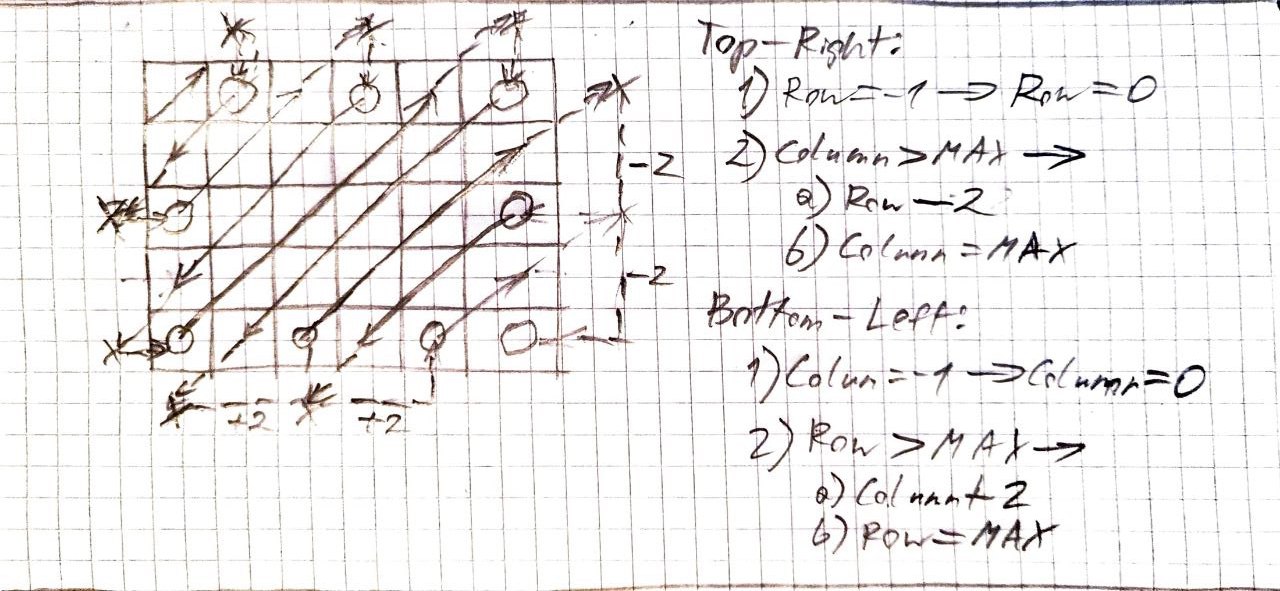 Top-Right:
1) Row=-1 → Row=0
2) Column>MAX →
a) Row-2
б) Column=MAX
-2
-2
Bottom-Left:
1) Colun=-1 → Column=0
2) Row>MAX →
a) Column+2
б) Row=MAX
+2 +2